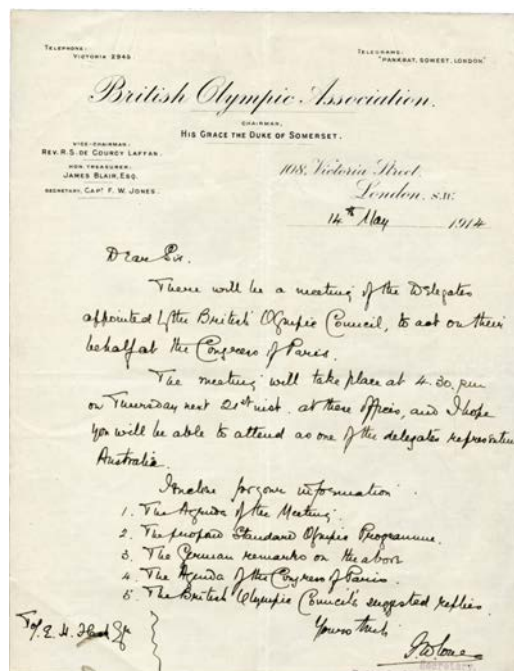 TELEPHONE:
VICTORIA 2945
TELEGRAMS:
"PANKRAT, SOWEST, LONDON"
British Olympic Association.
CHAIRMAN,
HIS GRACE THE DUKE OF SOMERSET.
VICE-CHAIRMAN:
REV. R.S. DE COURCY LAFFAN.
HON. TREASURER:
JAMES BLAIR, ESQ.
SECRETARY, CAPT F. W. JONES.
108, Victoria Street,
London, S.W.
14th May 1914
Dear Sir.
There will be a meeting of the Delegates
appointed by the British Olympic Council, to act on their
behalf at the Congress of Paris.
The meeting will take place at 4.30. pm
on Thursday next 21st inst. at these offices, and I hope
you will be able to attend as one of the delegates representing
Australia.
I enclose for your information
1. The Agenda of the Meeting.
2. The proposed Standard Olympic Programme.
3. The German remarks on the above
4. The Agenda of the Congress of Paris.
5. The British Olympic Council's suggested replies.
Yours truly
F. W. Jones
Secretary.
To/ E. H. Esq